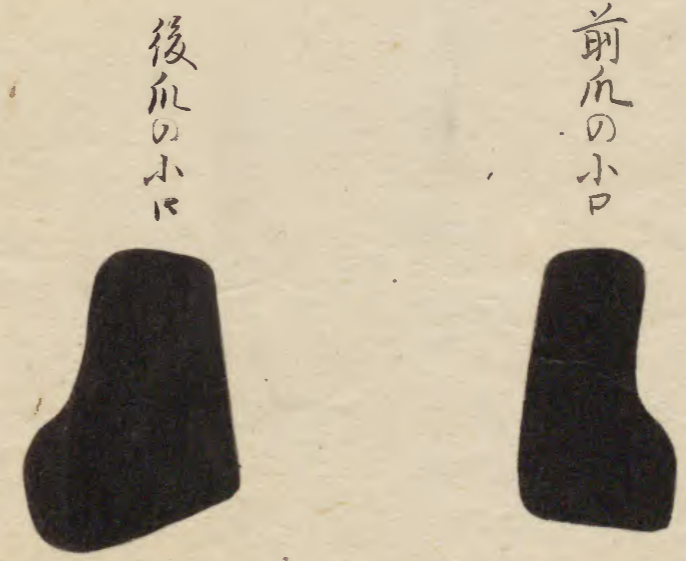 前爪の小口
後爪の小口